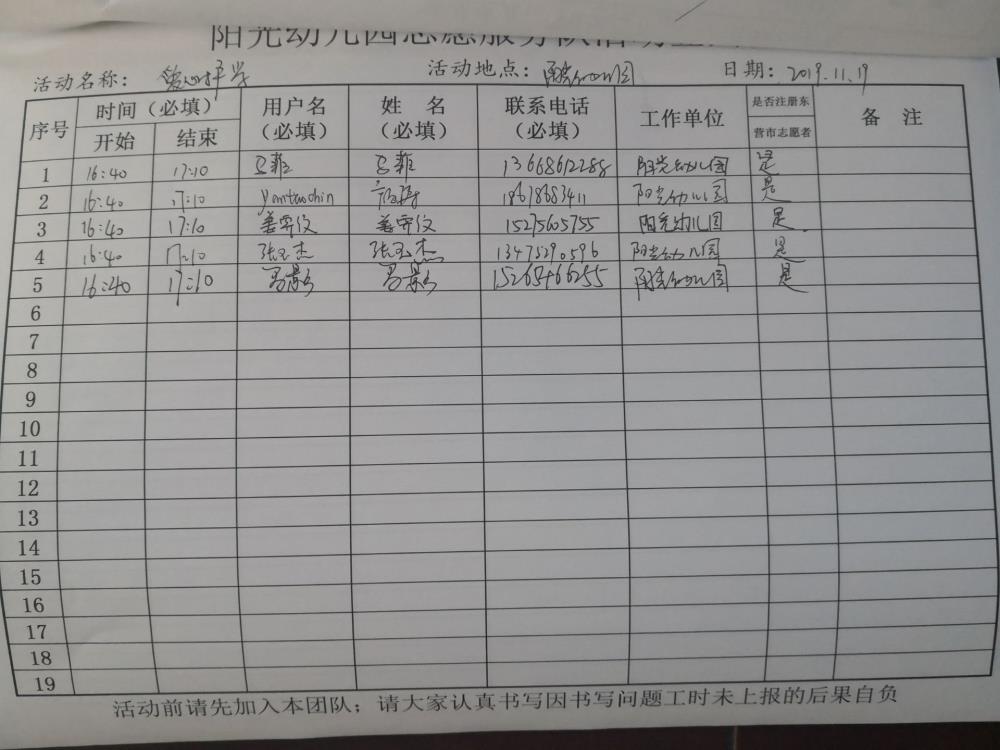 阳光幼儿园志愿服务队活动
活动名称： 爱心护学 活动地点： 阳光幼儿园 日期： 2019.11.19
序号 时间（必填） 用户名（必填） 姓名（必填） 联系电话（必填） 工作单位 是否注册东营市志愿者 备注
开始 结束
1 16:40 17:10 马菲 马菲 13668612288 阳光幼儿园 是
2 16:40 17:10 yantaochin 阳光幼儿园 是
3 16:40 17:10 姜雯仪 姜雯仪 15275605755 阳光幼儿园 是
4 16:40 17:10 张玉杰 张玉杰 13475290596 阳光幼儿园 是
5 16:40 17:10 15265466255 阳光幼儿园 是
6
7
8
9
10
11
12
13
14
15
16
17
18
19
活动前请先加入本团队；请大家认真书写因书写问题工时未上报的后果自负